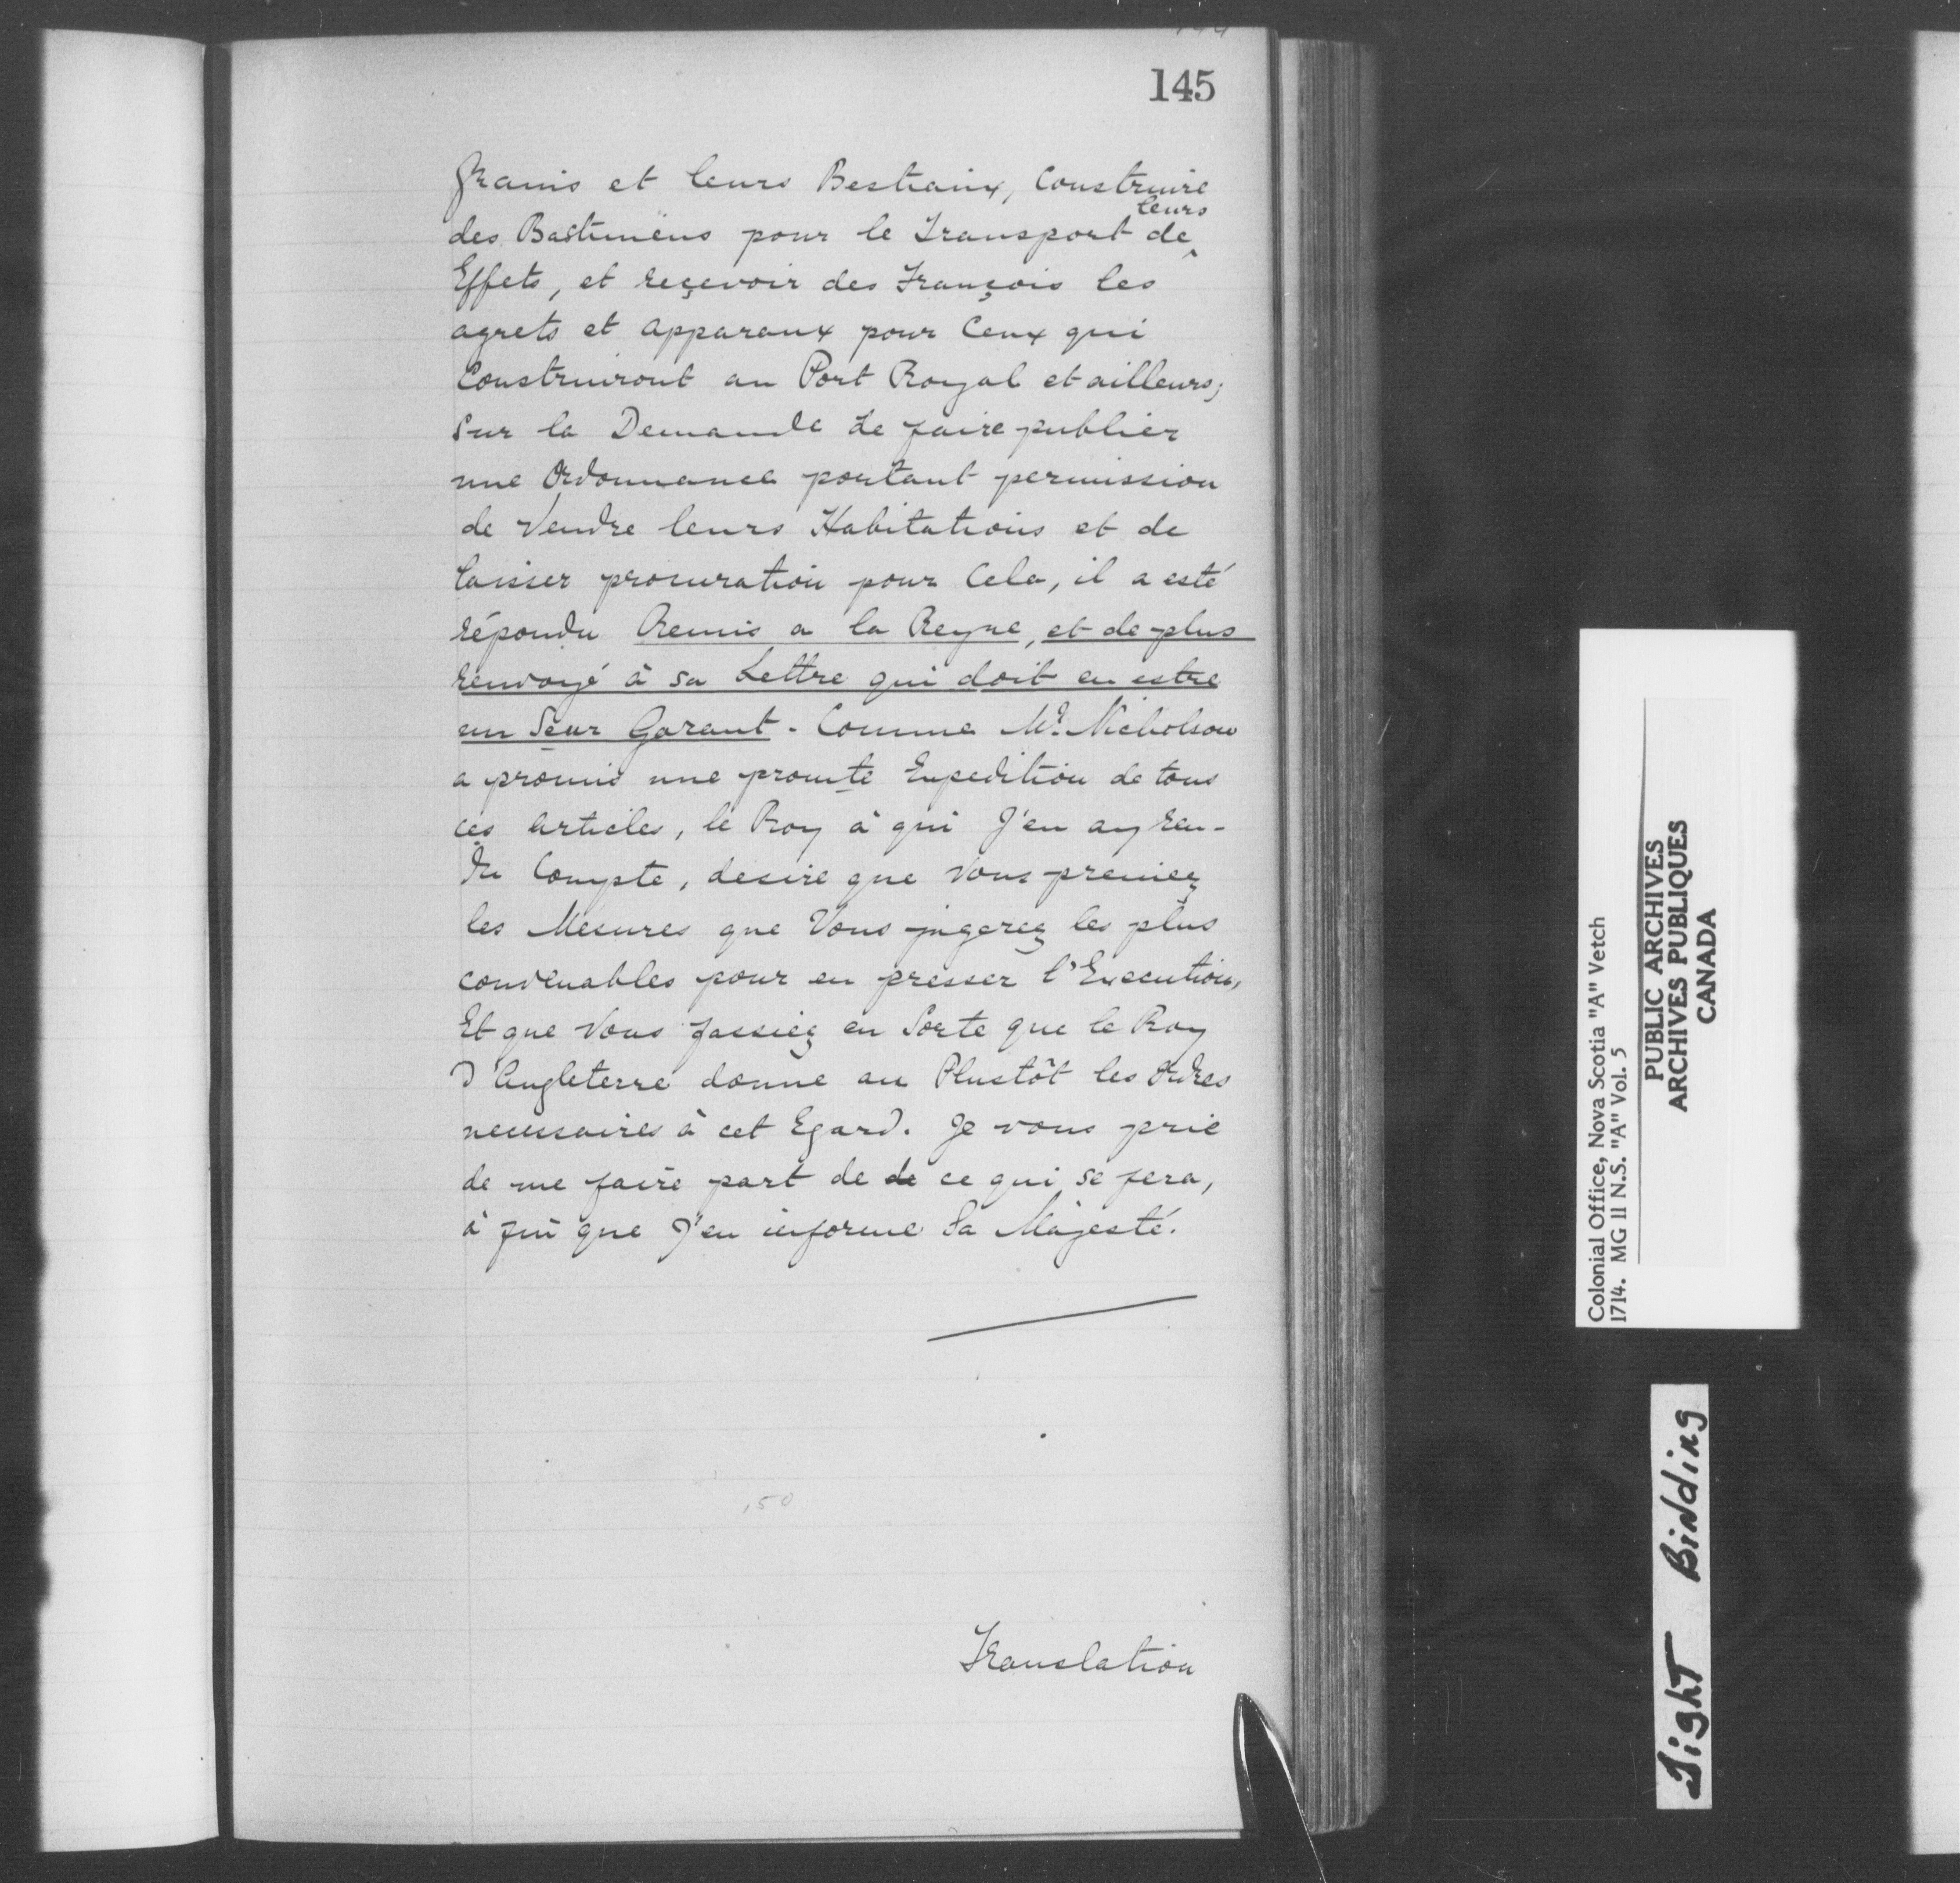 145
grains et leurs Bestiaux, Construire
des Bastimens pour le Transport de leurs
Effets, et reçevoir des François les
agrets et apparaux pour Ceux qui
Construiront au Port Royal et ailleurs;
Sur la Demande de faire publier
une Ordonnance portant permission
de Vendre leurs Habitations et de
laisser procuration pour Cela, il a esté
répondu Remis a la Reyne, et de plus
renvoyé à sa Lettre qui doit en estre
un Seur Garant. Comme Mr. Nicholson
a promis une promte Expedition de tous
ces articles, le Roy à qui J'en ay ren-
du Compte, desire que Vous preniez
les Mesures que Vous jugerez les plus
convenables pour en presser l'Execution,
Et que Vous fassiez en Sorte que le Roy
D'Angleterre donne au Plustôt les Ordres
necessaires à cet Egard. Je vous prie
de me faire part de de ce qui se fera,
à fin que J'en informe Sa Majesté.
,50
Translation
Colonial Office, Nova Scotia "A" Vetch
1714. MG 11 N.S. "A" Vol. 5
PUBLIC ARCHIVES
ARCHIVES PUBLIQUES
CANADA
Tight Binding